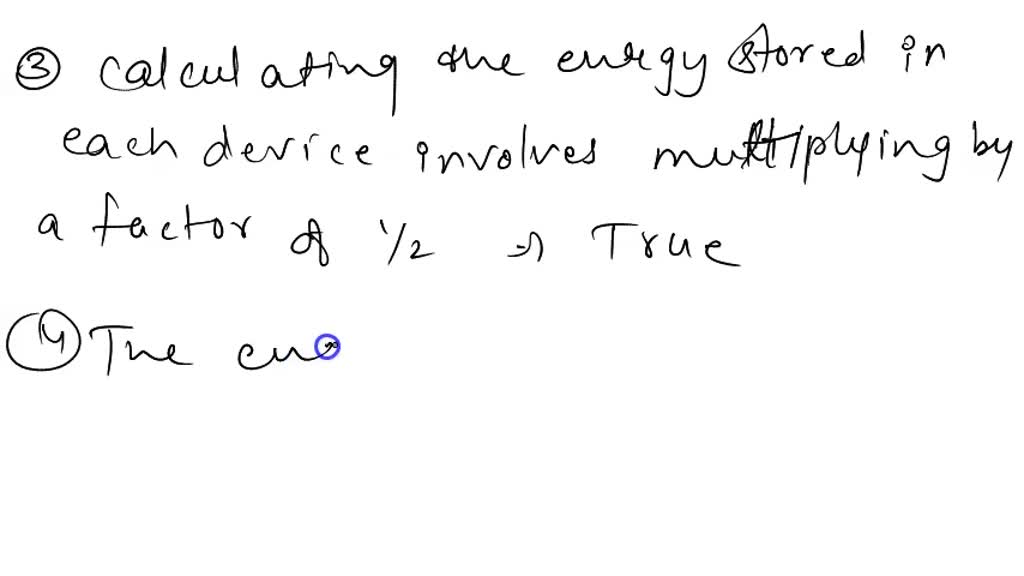 ③ calculating the energy stored in
each device involves multiplying by
a factor of 1/2 ⇒ True
④ The